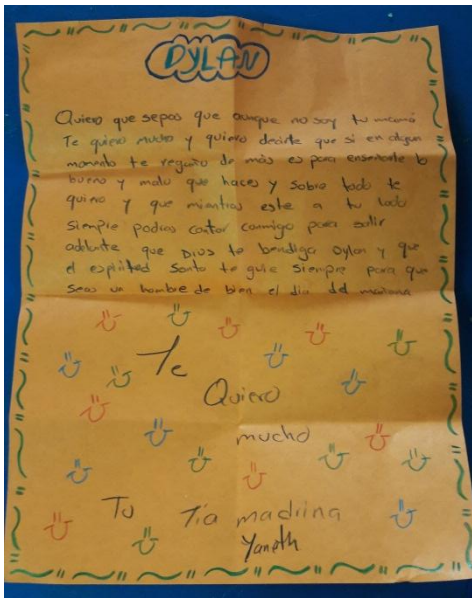 DYLAN
Quiero que sepas que aunque no soy tu mamá
Te quiero mucho y quiero decirte que si en algun
momento te regaño de más es para enseñarte lo
bueno y malo que haces y sobre todo te
quiero y que mientras este a tu lado
siempre podras contar conmigo para salir
adelante que Dios te bendiga Dylan y que
el espiritud santo te guie siempre para que
seas un hombre de bien el dia del mañana
Te
Quiero
mucho
Tu Tia madrina
Yaneth